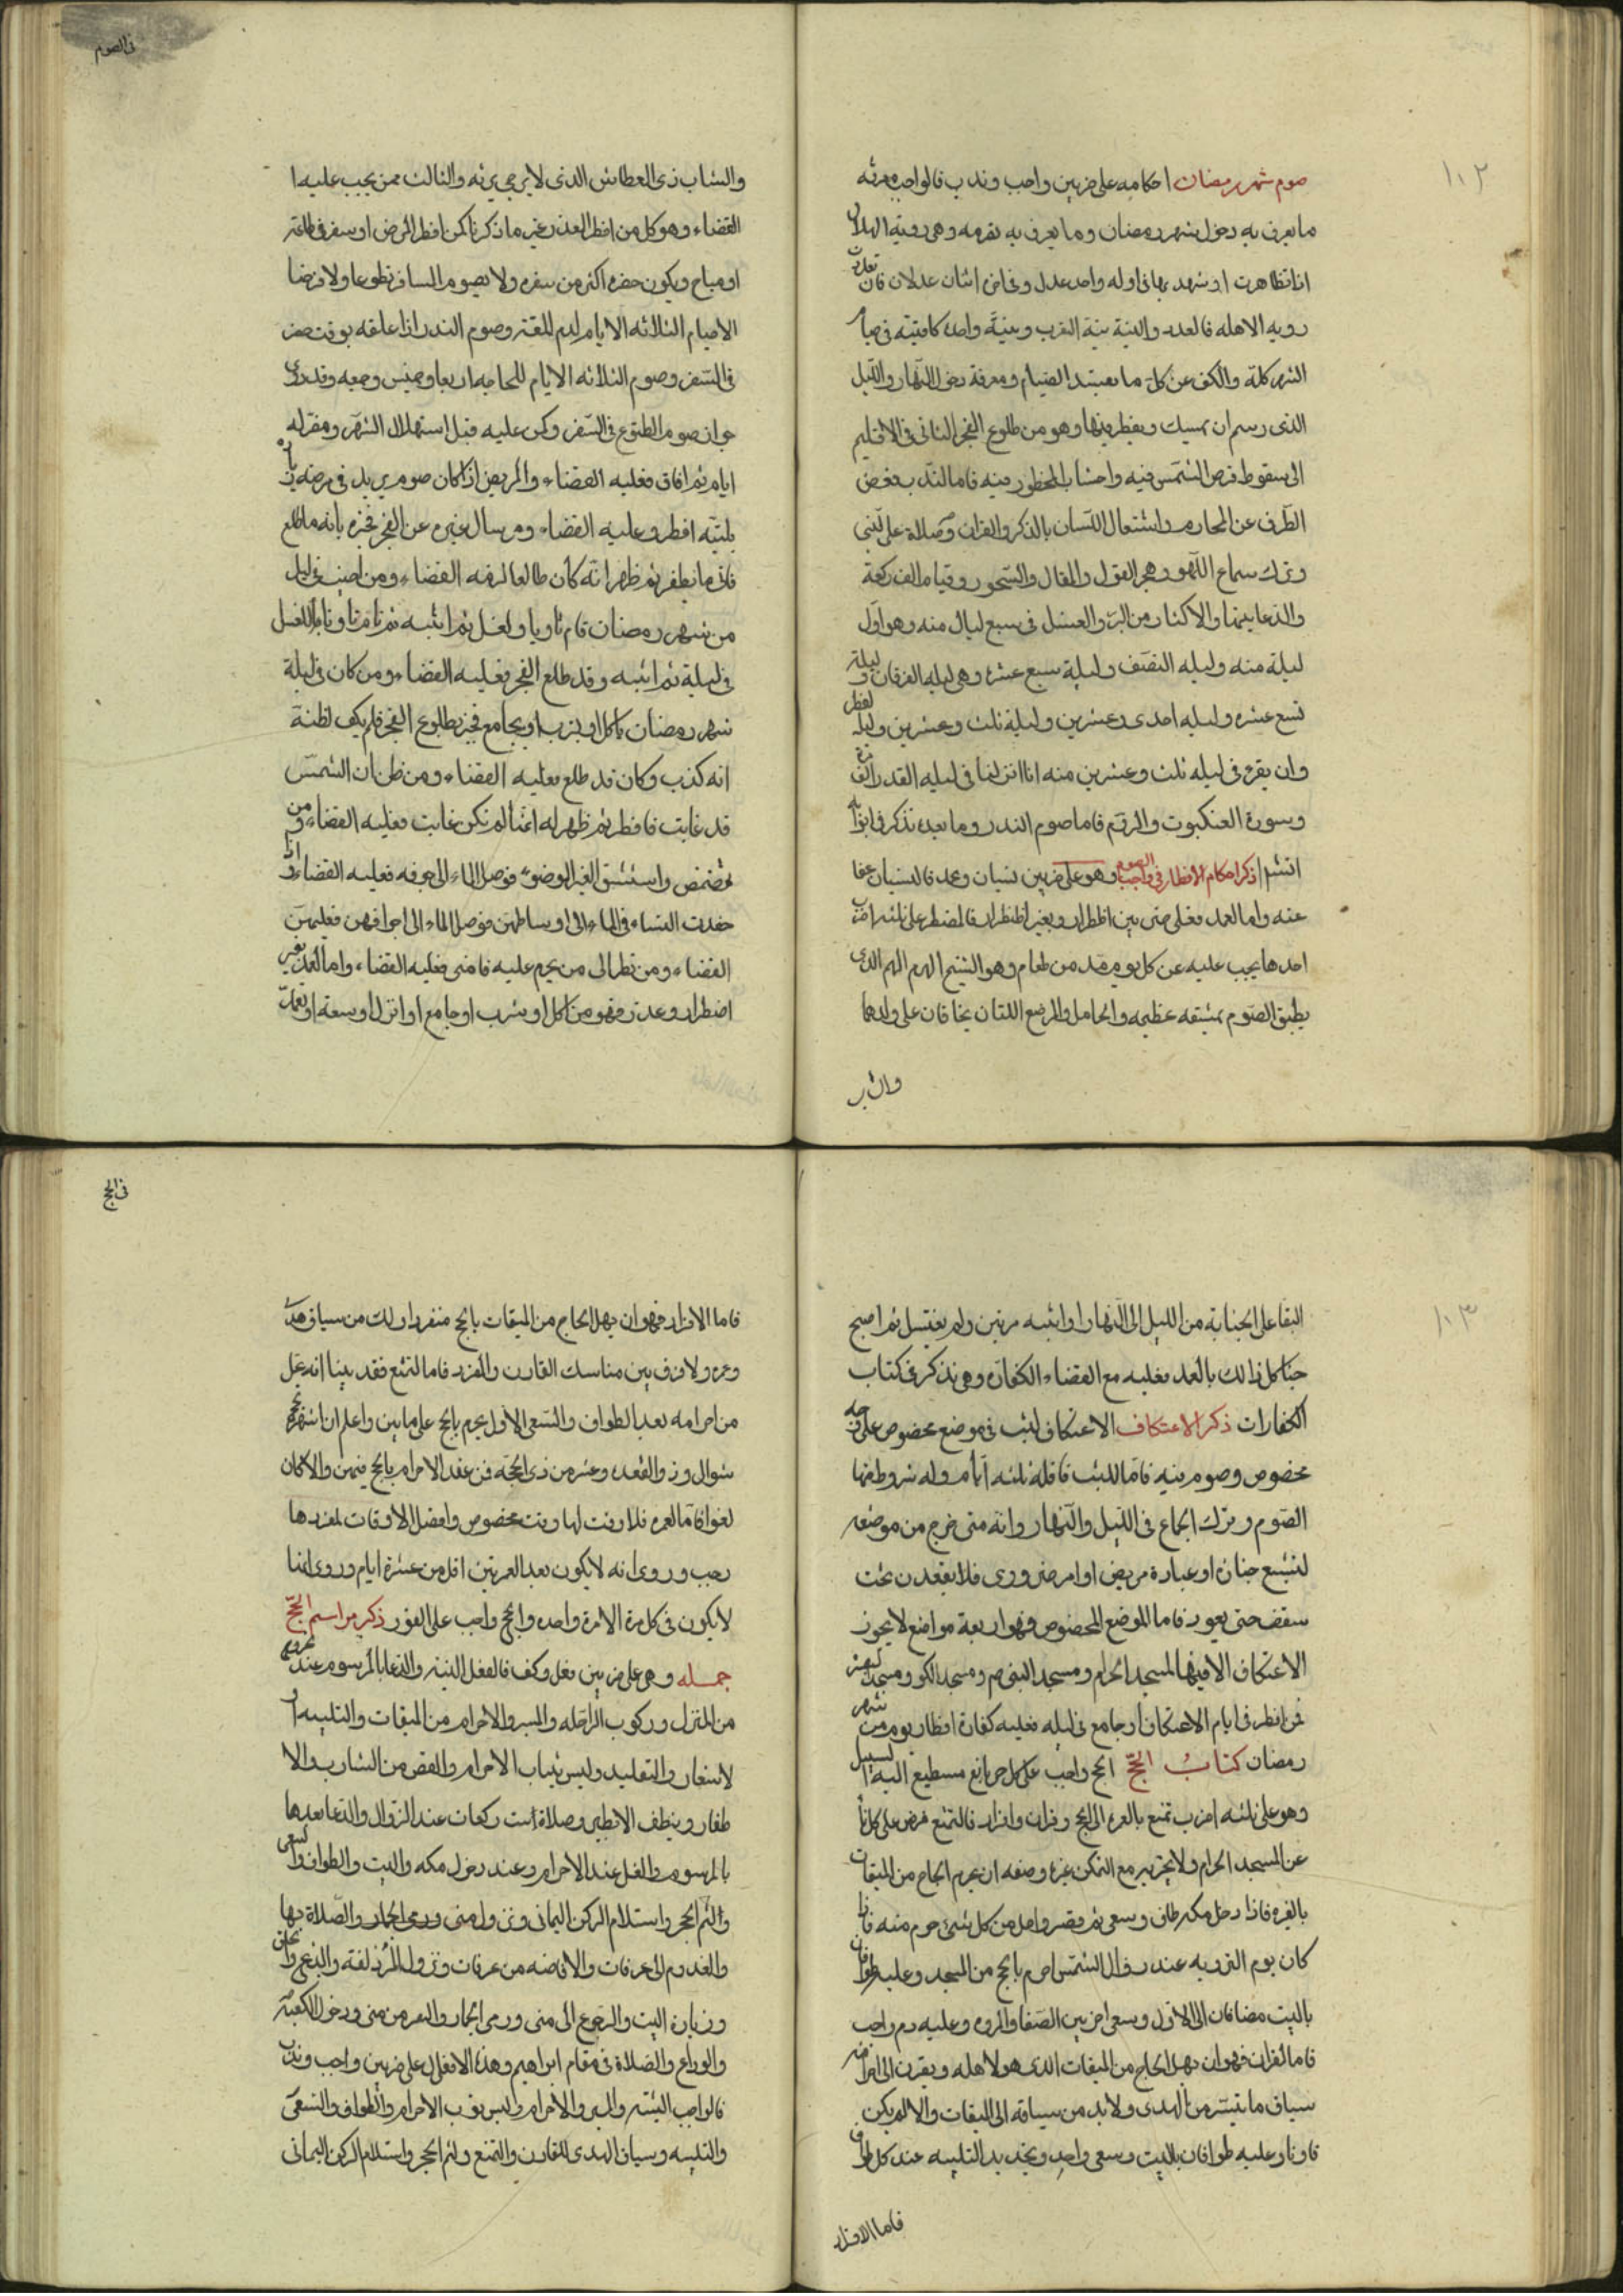 ١٠٢
صوم شهر رمضان احكامه على ضربين واجب وندب فالواجب معرفة
ما يعرف به دخول شهر رمضان وما يعرف به تصرمه وهى روية الهلال
اذا تظاهرت او شهد بها فى اوله واحد عدل وفى اخره اثنان عدلان فان تعذرت
روية الاهله فالعدد والنية نية القرب ونيّة واحدة كافيته فى صيام
الشهر كلّه والكف عن كلّ ما يفسد الصّيام ومعرفة دخول النّهار واللّيل
الذى رسم ان يمسك ويفطر فيها وهو من طلوع الفجر الثانى فى الاقليم
الى سقوط قرص الشمس فيه واجتناب المحظور فيه فاما الندب فغض
الطّرف عن المحارم واشتعال اللّسان بالذكر والقران وصلاة على النّبى
وترك سماع اللّهو وهجر القول والمقال والسّحور وقيام الف ركعة
والدعا بينها والاكثار من البرّ والغسل فى سبع ليال منه وهو اوّل
ليلة منه وليله النصف وليلة سبع عشرة وهى ليله الفرقان وليلة
تسع عشره وليله احدى وعشرين وليلة ثلث وعشرين وليله الفطر
وان يقرء فى ليله ثلث وعشرين منه انا انزلنا فى ليله القدر الف مرة
وسورة العنكبوت والروم فاما صوم النذر وما بعده نذكر فى ابوابه
انشا ذكر احكام الافطار فى واجب الصوم وهو على ضربين نسيان وعمد فالنسيان عفا
عنه واما العمد فعلى ضربين اظطرار وبغير اظطرار فالمضطر على ثلثه اضرب
احدها يجب عليه عن كل يوم مد من طعام وهو الشيخ الهرم الهم الذى
يطيق الصّوم بمشيقه عظيمه والحامل والمرضع اللتان يخافان على ولدهما
والشاب
فى الصوم
والشاب ذى العطاش الذى لا يرجى برئه والثالث ممن يجب عليه ا
القضاء وهو كل من افطر لعذر غير ما ذكرنا كمن افطر لمرض او سفر فى طاعة
او مباح ويكون حضره اكثر من سفره ولا يصوم المسافر تطوعا ولا فرضا
الا صيام الثلاثه الايام لدم المتعة وصوم النذر اذا علقه بوقت حضر
فى السّفر وصوم الثلاثه الايام للحاجه اربعا وخميس وجمعه وقد روى
جواز صوم التطوع فى السّفر وكمن عليه قبل استهلال الشّهر ومقر له
ايام ثم افاق فعليه القضاء والمريض اذا كان صومه يزيد فى مرضه
بليّه افطر وعليه القضاء ومن سال غيره عن الفجر فخبره بانه ما طلع
فاتى ما يفطر ثم ظهر انّه كان طالعا لزمه القضاء ومن اجنب فى ليل
من شهر رمضان فنام ناويا ولغسل ثم انتبه ثم نام ناويا للغسل
فى ليلة ثم انتبه وقد طلع الفجر فعليه القضاء ومن كان فى ليلة
شهر رمضان ياكل او يشرب او يجامع فخبر بطلوع الفجر فلم يكف لظنّه
انه كذب وكان قد طلع فعليه القضاء ومن ظن ان الشمس
قد غابت فافطر ثم ظهر له انها لم تكن غابت فعليه القضاء ومن
تمضمض واستنشق لغير الوضوء فوصل الماء الى جوفه فعليه القضاء واذا
قعدت النساء فى الماء الى اوساطهن فوصل الماء الى اجوافهن فعليهن
القضاء ومن نظر الى من يحرم عليه فامنى فعليه القضاء واما العمد بغير
اضطرار وعذر فهو من اكل او شرب او جامع او انزل او سعط او تعمد
١٠٣
البقا على الجنابة من الليل الى النّهار او انتبه مرتين ولم يغتسل ثم اصبح
جنبا كل ذالك بالعمد فعليه مع القضاء الكفارة وهى نذكر فى كتاب
الكفارات ذكر الاعتكاف الاعتكاف لبث فى موضع مخصوص على وجه
مخصوص وصوم فيه فامّا اللبث فاقله ثلثه ايّام وله شروط منها
الصّوم وترك الجماع فى اللّيل والنّهار وانه متى خرج من موضعه
لتشييع جنازة او عيادة مريض او امر ضرورى فلا يقعدن تحت
سقف حتى يعود فاما الموضع المخصوص فهو اربعة مواضع لا يجوز
الاعتكاف الا فيها المسجد الحرام ومسجد النبى صم ومسجد الكوفه ومسجد البصره
فمن افطر فى ايام الاعتكاف او جامع فى ليله فعليه كفارة افطار يوم من شهر
رمضان كتاب الحجّ الحج واجب على كل حر بالغ مستطيع اليه السبيل
وهو على ثلثه اضرب تمتع بالعمره الى الحج وقران وافراد فالتمتع فرض على كل ناء
عن المسجد الحرام ولا يجزيه مع التمكن غيره وصفه ان يحرم الحاج من الميقات
بالعمره فاذا دخل مكه طاف وسعى ثم قصر واحل من كل شئ حرم منه فاذا
كان يوم الترويه عند زوال الشمس احرم بالحج من المسجد وعليه طوافان
بالبيت مضافان الى الاوّل وسعى اخر بين الصّفا والمروه وعليه دم واجب
فاما القران فهو ان يهل الحاج من الميقات الذى هو لاهله ويقرن الى احرامه
سياق ما تيسّر من الهدى ولا بد من سياقه الى الميقات والا لم يكن
قارنا وعليه طوافان بالبيت وسعى واحد ويجدد التلبيه عند كل طواف
فاما الافراد
فى الحج
فاما الافراد فهو ان يهل الحاج من الميقات بالحج منفردا لك من سياق هدى
وعمره ولا فرق بين مناسك القارن والمفرد فاما المتمتع فقد بينا انه يحل
من احرامه بعد الطواف والسّعى الاوّل يحرم بالحج على ما بين واعلم ان اشهر الحج
شوال وذو القعده وعشر من ذى الحجّه فمن عقد الاحرام بالحج فيهن والا كان
لغوا فامّا العمره فلا وقت لها وقت مخصوص وافضل الاوقات لمفردها
رجب وروى انه لا يكون بعد العمرتين اقل من عشرة ايام وروى انها
لا يكون فى كل مرة الا مرة واحده والحج واجب على الفور ذكر مراسم الحجّ
جمله وهى على ضربين فعل وكف فالفعل النيّة والدعا بالمرسوم عند خروج
من المنزل وركوب الرّاحله والمسير والاحرام من الميقات والتلبيه او
لاشعار والتقليد ولبس ثياب الاحرام والقص من الشارب والا
ظفار وينظف الابطين وصلاة ست ركعات عند الزّوال والدّعا بعدها
بالمرسوم والغسل عند الاحرام وعند دخول مكه والبيت والطواف والسعى
ولثم الحجر واستلام الركن اليمانى ونزول منى ورمى الجمار والصّلاة بها
والغدوم الى عرفات والافاضه من عرفات ونزول المزدلفة والذبح والحلق
وزيارة البيت والرجوع الى منى ورمى الجمار والنفر من منى ودخول الكعبة
والوداع والصلاة فى مقام ابراهيم وهذه الافعال على ضربين واجب وندب
فالواجب النية والسير والاحرام ولبس ثوب الاحرام والطواف والسّعى
والتلبيه وسياق الهدى للقارن والمتمتع ولثم الحجر واستلام الركن اليمانى